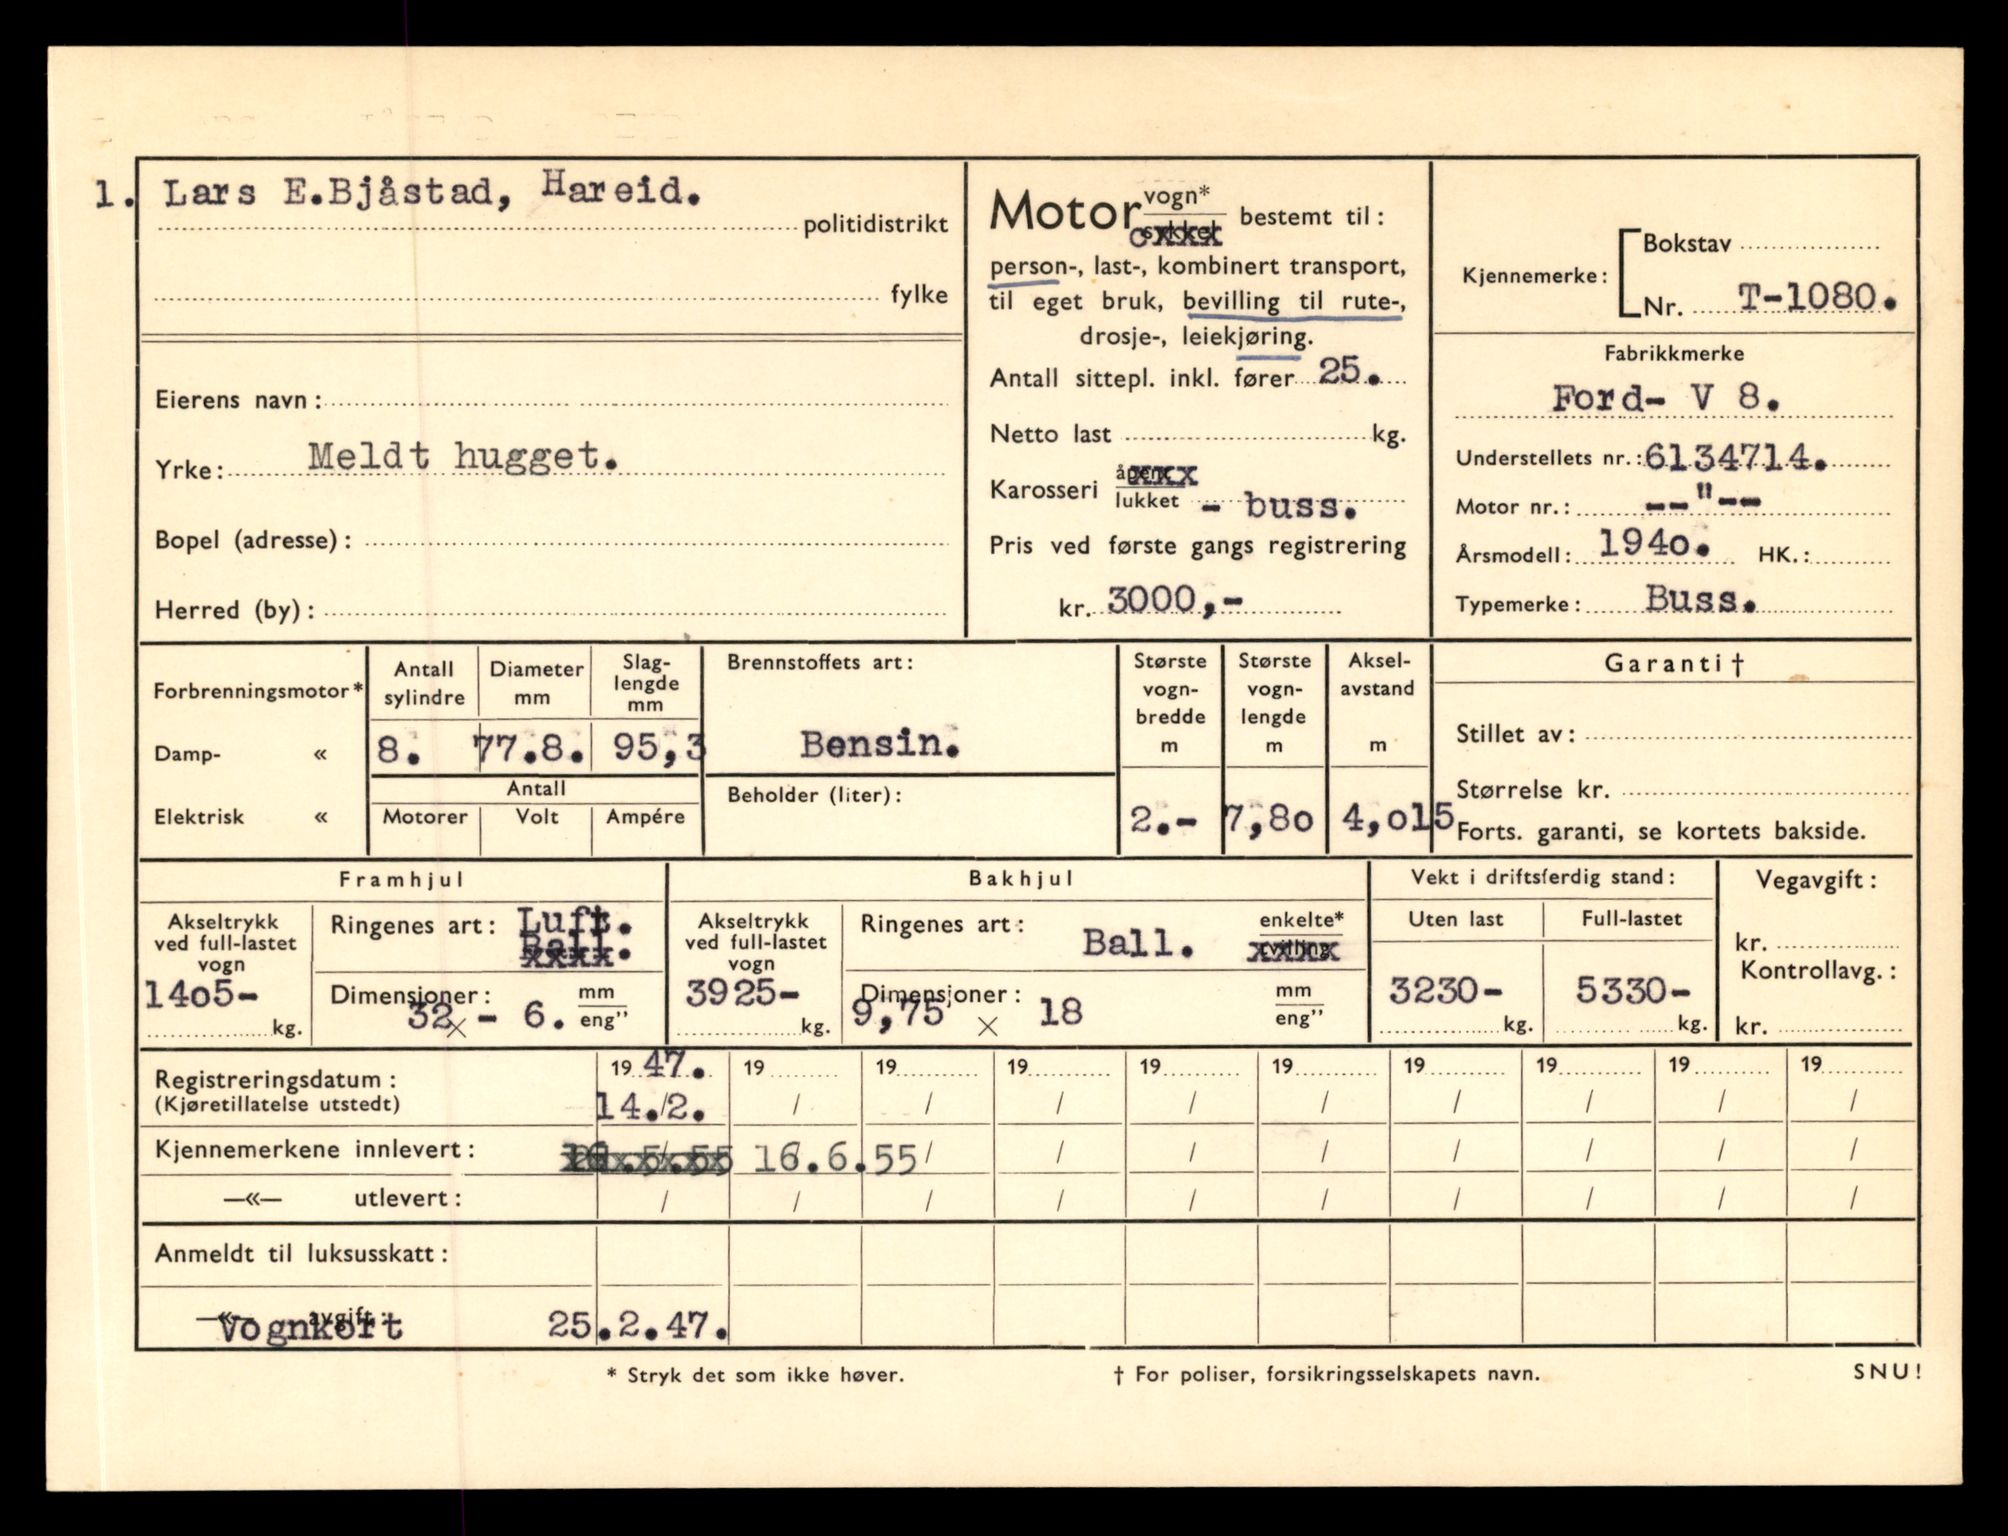 1. Lars E.Bjåstad, Hareid.
politidistrikt
fylke
Eierens navn:
Yrke: Meldt hugget.
Bopel (adresse):
Herred (by):
Motor vogn*
sykkel
bestemt til:
person-, last-, kombinert transport,
til eget bruk, bevilling til rute-,
drosje-, leiekjøring.
Antall sittepl. inkl. fører 25.
Netto last kg.
Karosseri åpent
lukket - buss.
Pris ved første gangs registrering
kr. 3000,-
Kjennemerke:
Bokstav
Nr. T-1080.
Fabrikkmerke
Ford- V 8.
Understellets nr.: 6134714.
Motor nr.: --"--
Årsmodell: 194o. HK.:
Typemerke: Buss.
Forbrenningsmotor*
Damp- «
Elektrisk «
Antall sylindre
Diameter mm
Slag-lengde mm
8. 77.8. 95,3
Antall
Motorer Volt Ampére
Brennstoffets art:
Bensin.
Beholder (liter):
Største vogn-bredde m
Største vogn-lengde m
Aksel-avstand m
2.- 7,8o 4,o15
Garanti †
Stillet av:
Størrelse kr.
Forts. garanti, se kortets bakside.
Framhjul
Akseltrykk ved full-lastet vogn
14o5- kg.
Ringenes art: Luft.
Ball.
Dimensjoner: 32 × - 6. mm
eng"
Bakhjul
Akseltrykk ved full-lastet vogn
3925- kg.
Ringenes art: Ball. enkelte*
tvilling
Dimensjoner: 9,75 × 18 mm
eng"
Vekt i driftsferdig stand:
Uten last Full-lastet
3230- kg. 5330- kg.
Vegavgift:
kr.
Kontrollavg.:
kr.
Registreringsdatum: 19 47. 19 19 19 19 19 19 19 19 19
(Kjøretillatelse utstedt) 14./2. / / / / / / / / /
Kjennemerkene innlevert: 16.6.55 / / / / / / / /
—«— utlevert: / / / / / / / / / /
Anmeldt til luksusskatt:
—«— avgift:
Vognkort 25.2.47.
* Stryk det som ikke høver.
† For poliser, forsikringsselskapets navn.
SNU!